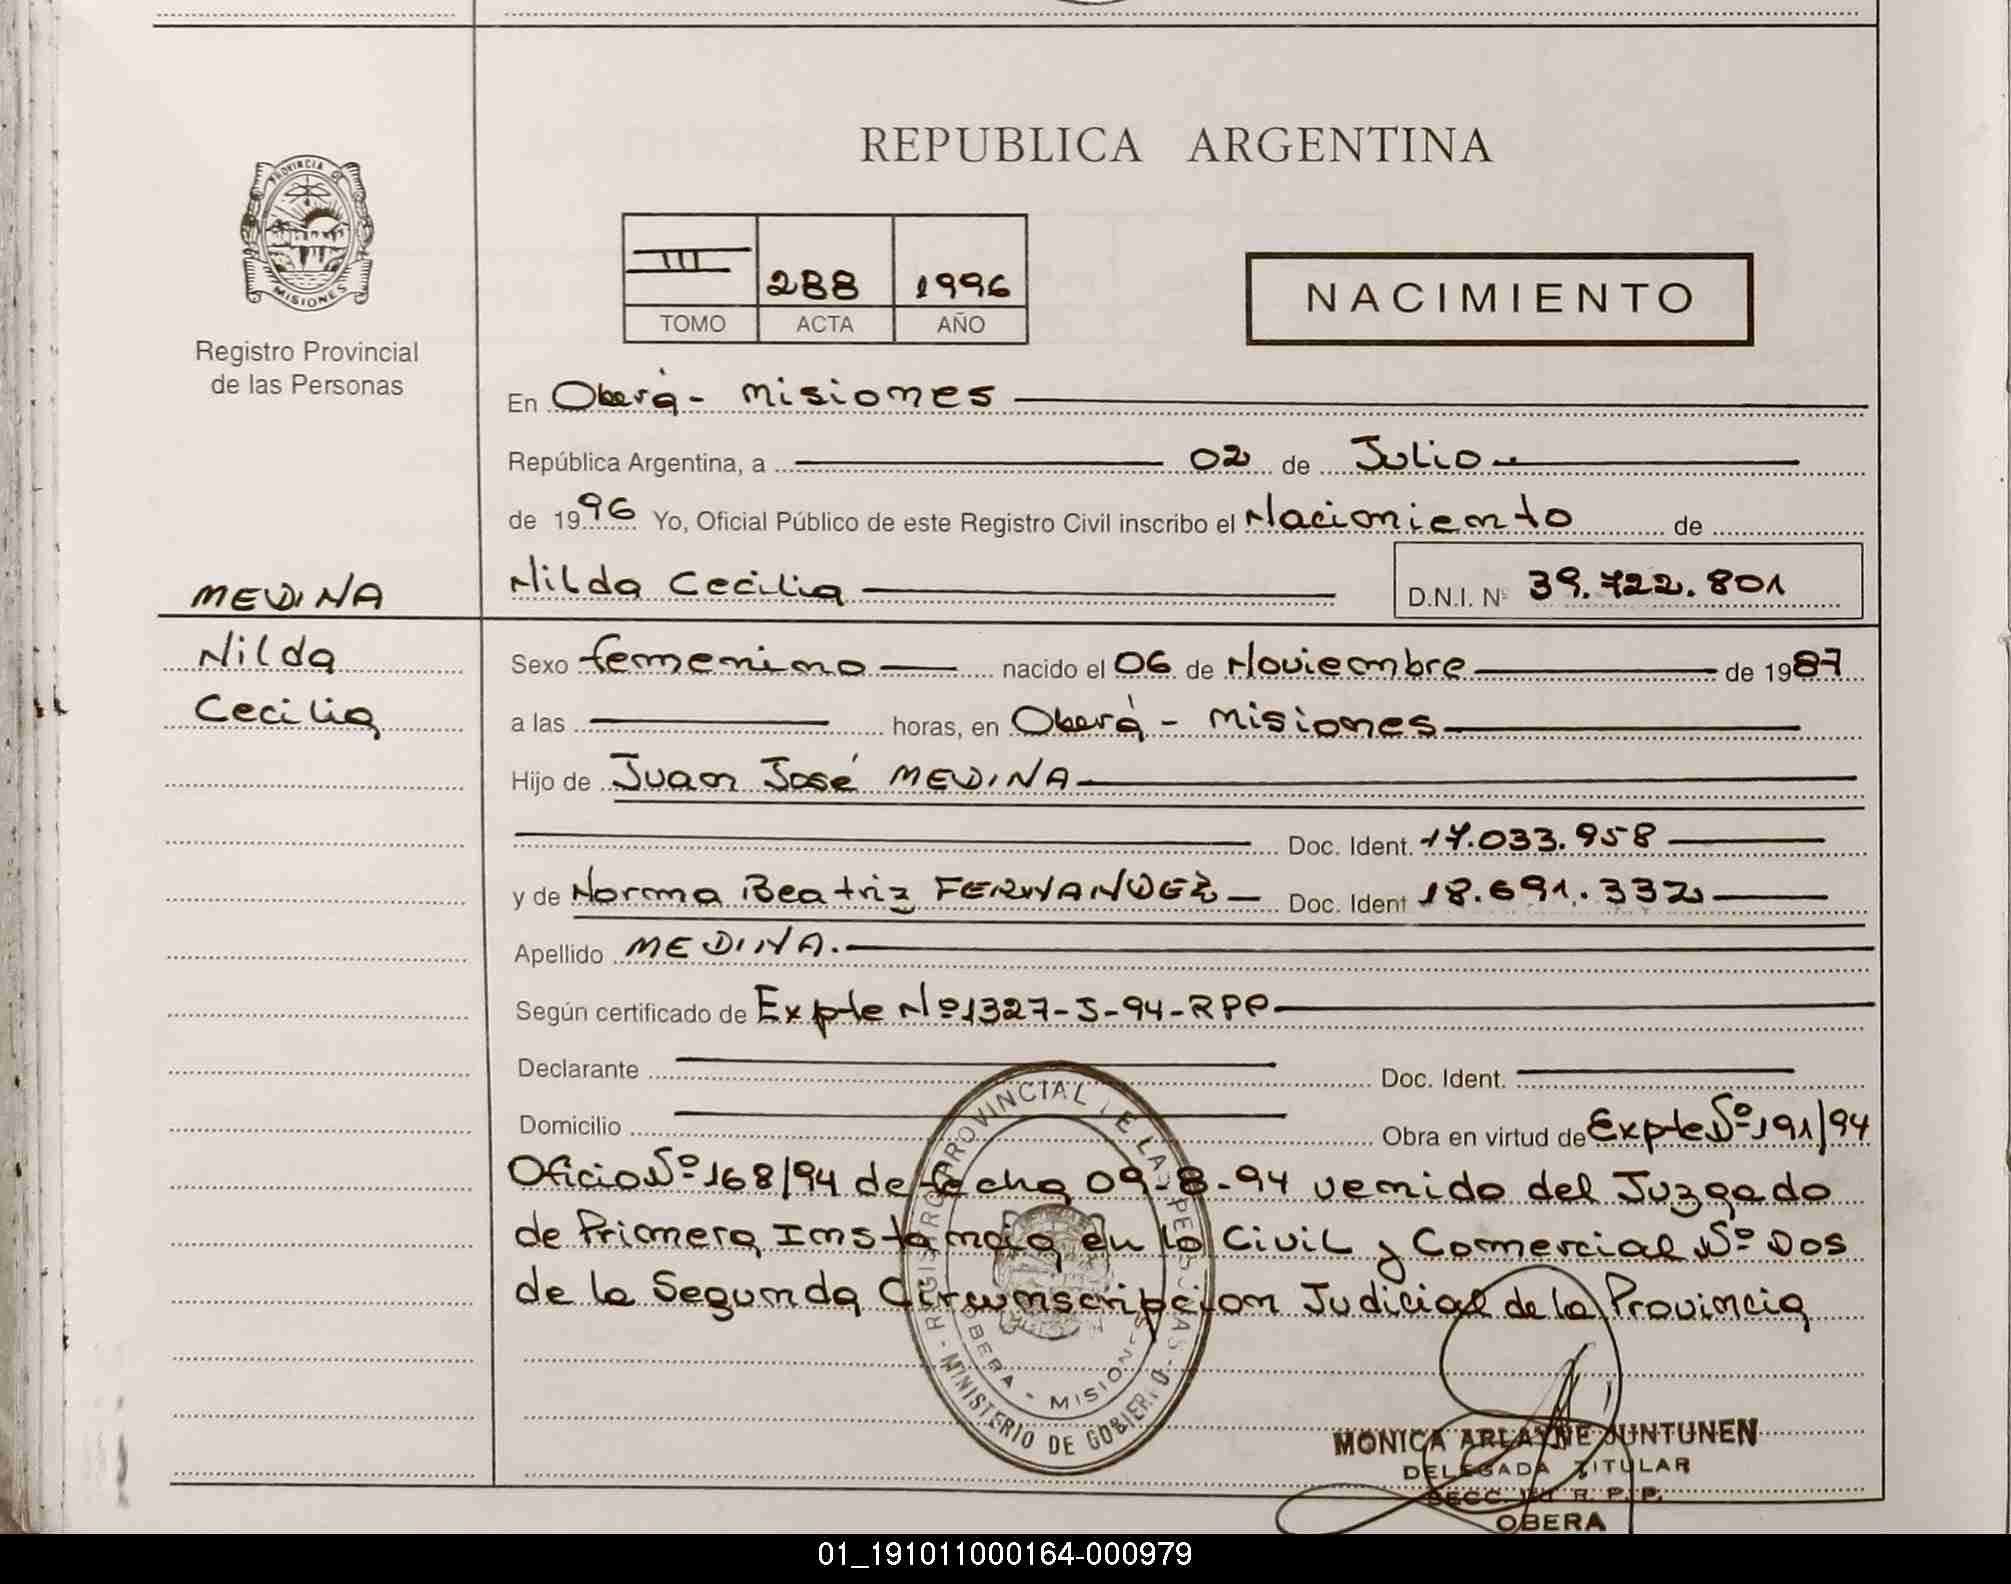 REPUBLICA ARGENTINA
PROVINCIA DE
MISIONES
Registro Provincial
de las Personas
III 288 1996
TOMO ACTA AÑO
NACIMIENTO
En Oberá - Misiones
República Argentina, a 02 de Julio
de 1996 Yo, Oficial Público de este Registro Civil inscribo el Nacimiento de
MEDINA
Nilda Cecilia
D.N.I. Nº 39.722.801
Nilda
Cecilia
Sexo femenino nacido el 06 de Noviembre de 1987
a las horas, en Oberá - Misiones
Hijo de Juan José MEDINA
Doc. Ident. 17.033.958
y de Norma Beatriz FERNANDEZ Doc. Ident 18.691.332
Apellido MEDINA.
Según certificado de Expte Nº 1327-S-94-RPP
Declarante Doc. Ident.
Domicilio Obra en virtud de Expte Nº 191/94
Oficio Nº 168/94 de fecha 09-8-94 venido del Juzgado
de Primera Instancia en lo Civil y Comercial Nº Dos
de la Segunda Circunscripcion Judicial de la Provincia
REGISTRO PROVINCIAL DE LAS PERSONAS
MINISTERIO DE GOBIERNO
OBERA - MISIONES
MONICA ARLAYNE JUNTUNEN
DELEGADA TITULAR
SECC. R. P. P.
OBERA
01_191011000164-000979